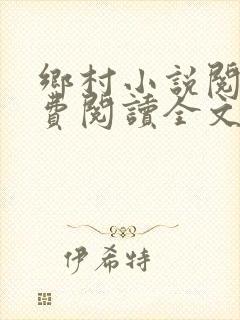 鄉村小說閱
費閱讀全文
伊希特